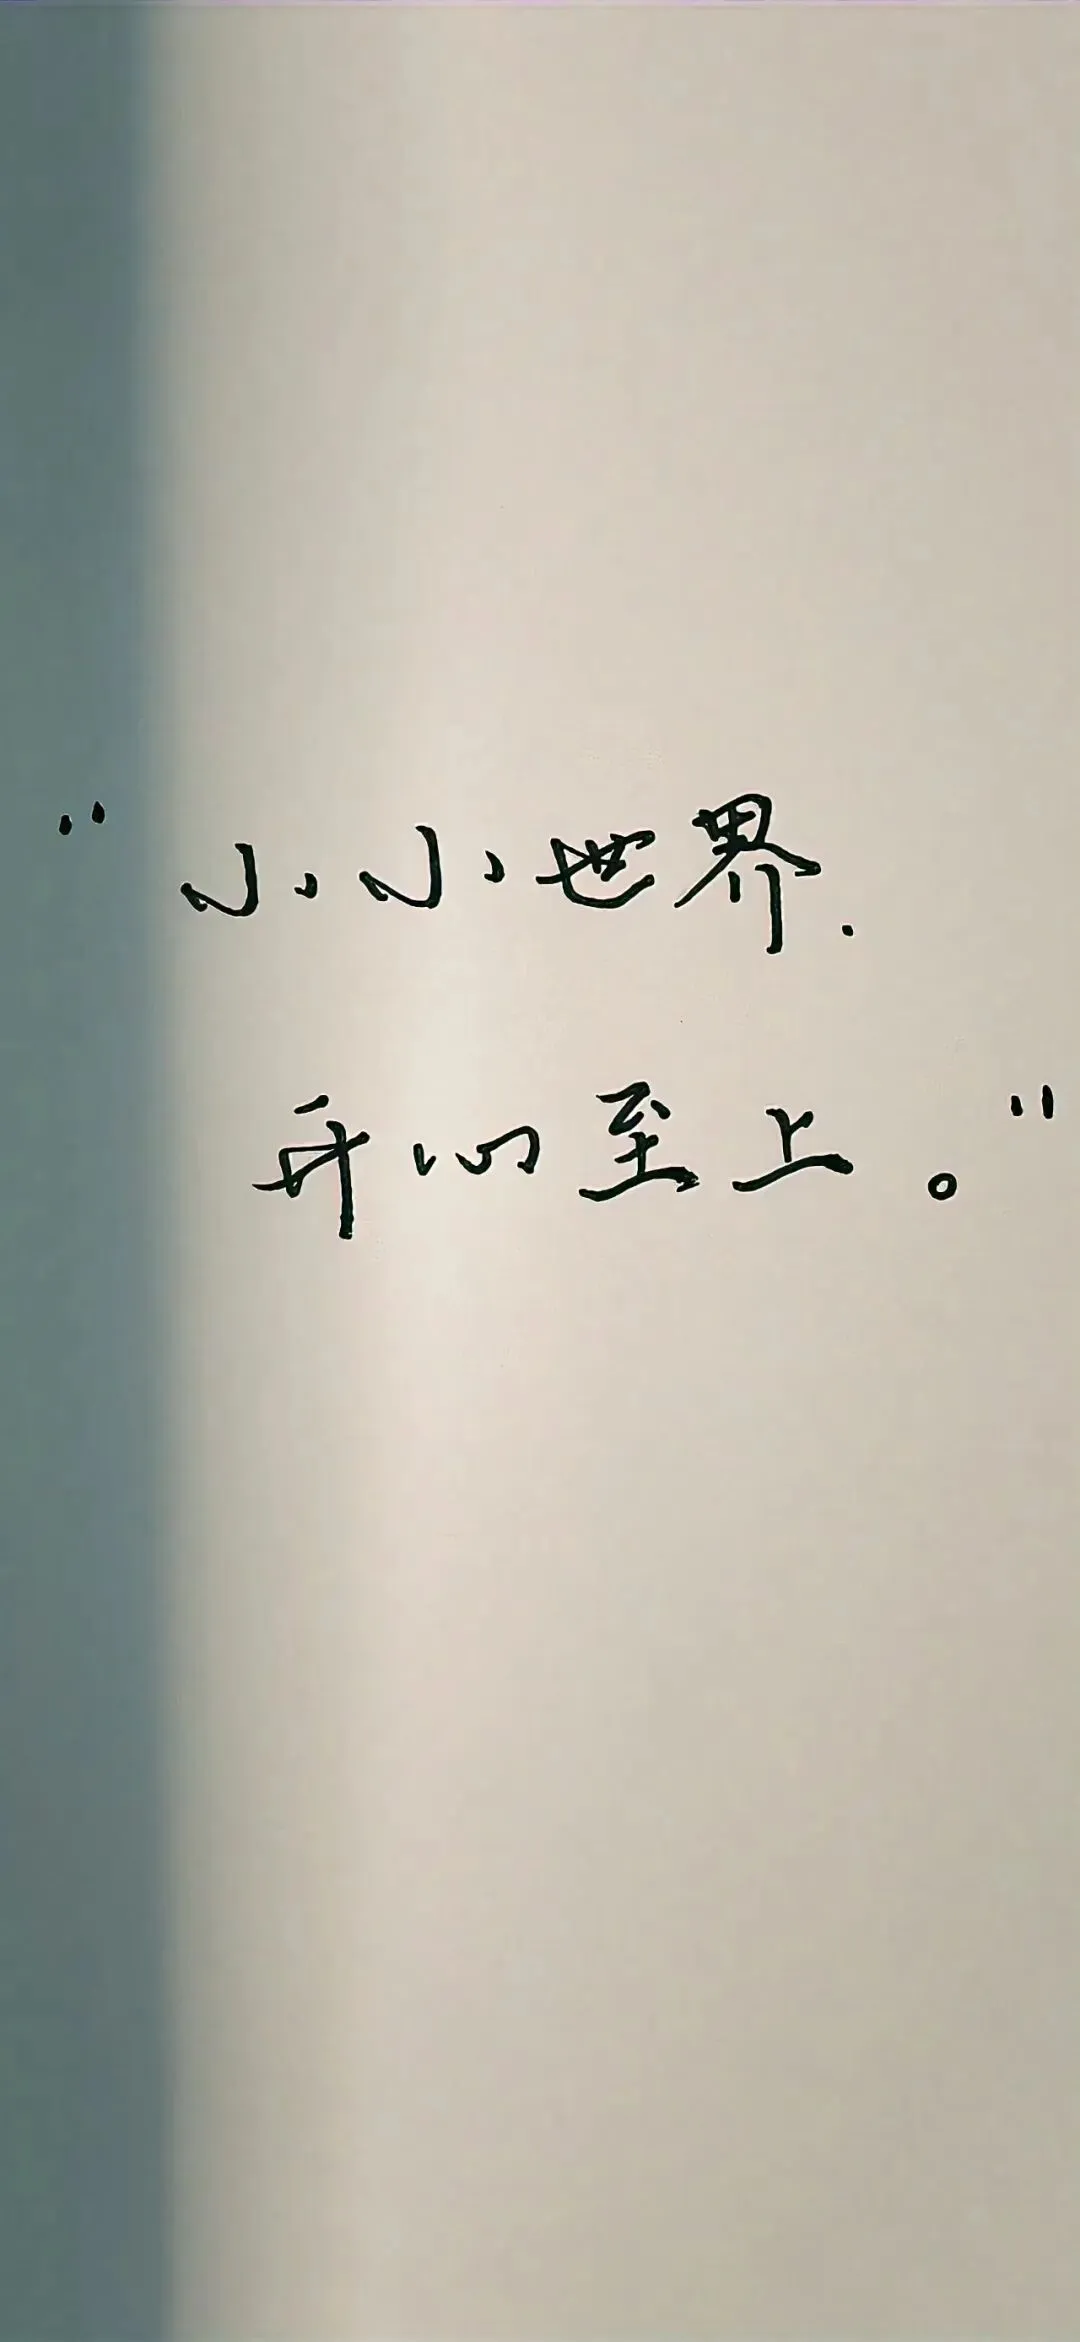 "小小世界.
开心至上。"